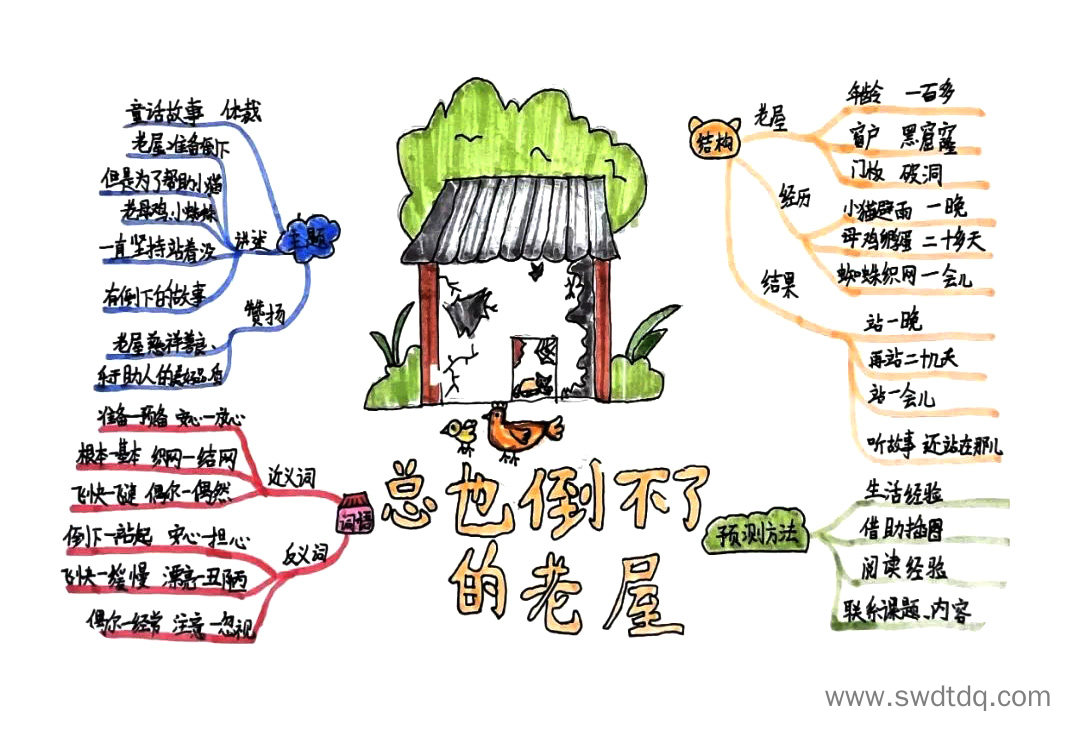 童话故事 体裁
老屋准备倒下
但是为了帮助小猫
老母鸡、小蜘蛛
一直坚持站着没
有倒下的故事
讲述
主题
赞扬
老屋慈祥善良、
乐于助人的美好品质
准备-预备 安心-放心
根本-基本 织网-结网
飞快-飞速 偶尔-偶然
近义词
词语
倒下-站起 安心-担心
飞快-缓慢 漂亮-丑陋
偶尔-经常 注意-忽视
反义词
总也倒不了
的老屋
结构
老屋
年龄 一百多
窗户 黑窟窿
门板 破洞
经历
小猫避雨 一晚
母鸡孵蛋 二十多天
蜘蛛织网 一会儿
结果
站一晚
再站二十九天
站一会儿
听故事 还站在那儿
预测方法
生活经验
借助插图
阅读经验
联系课题、内容
www.swdtdq.com